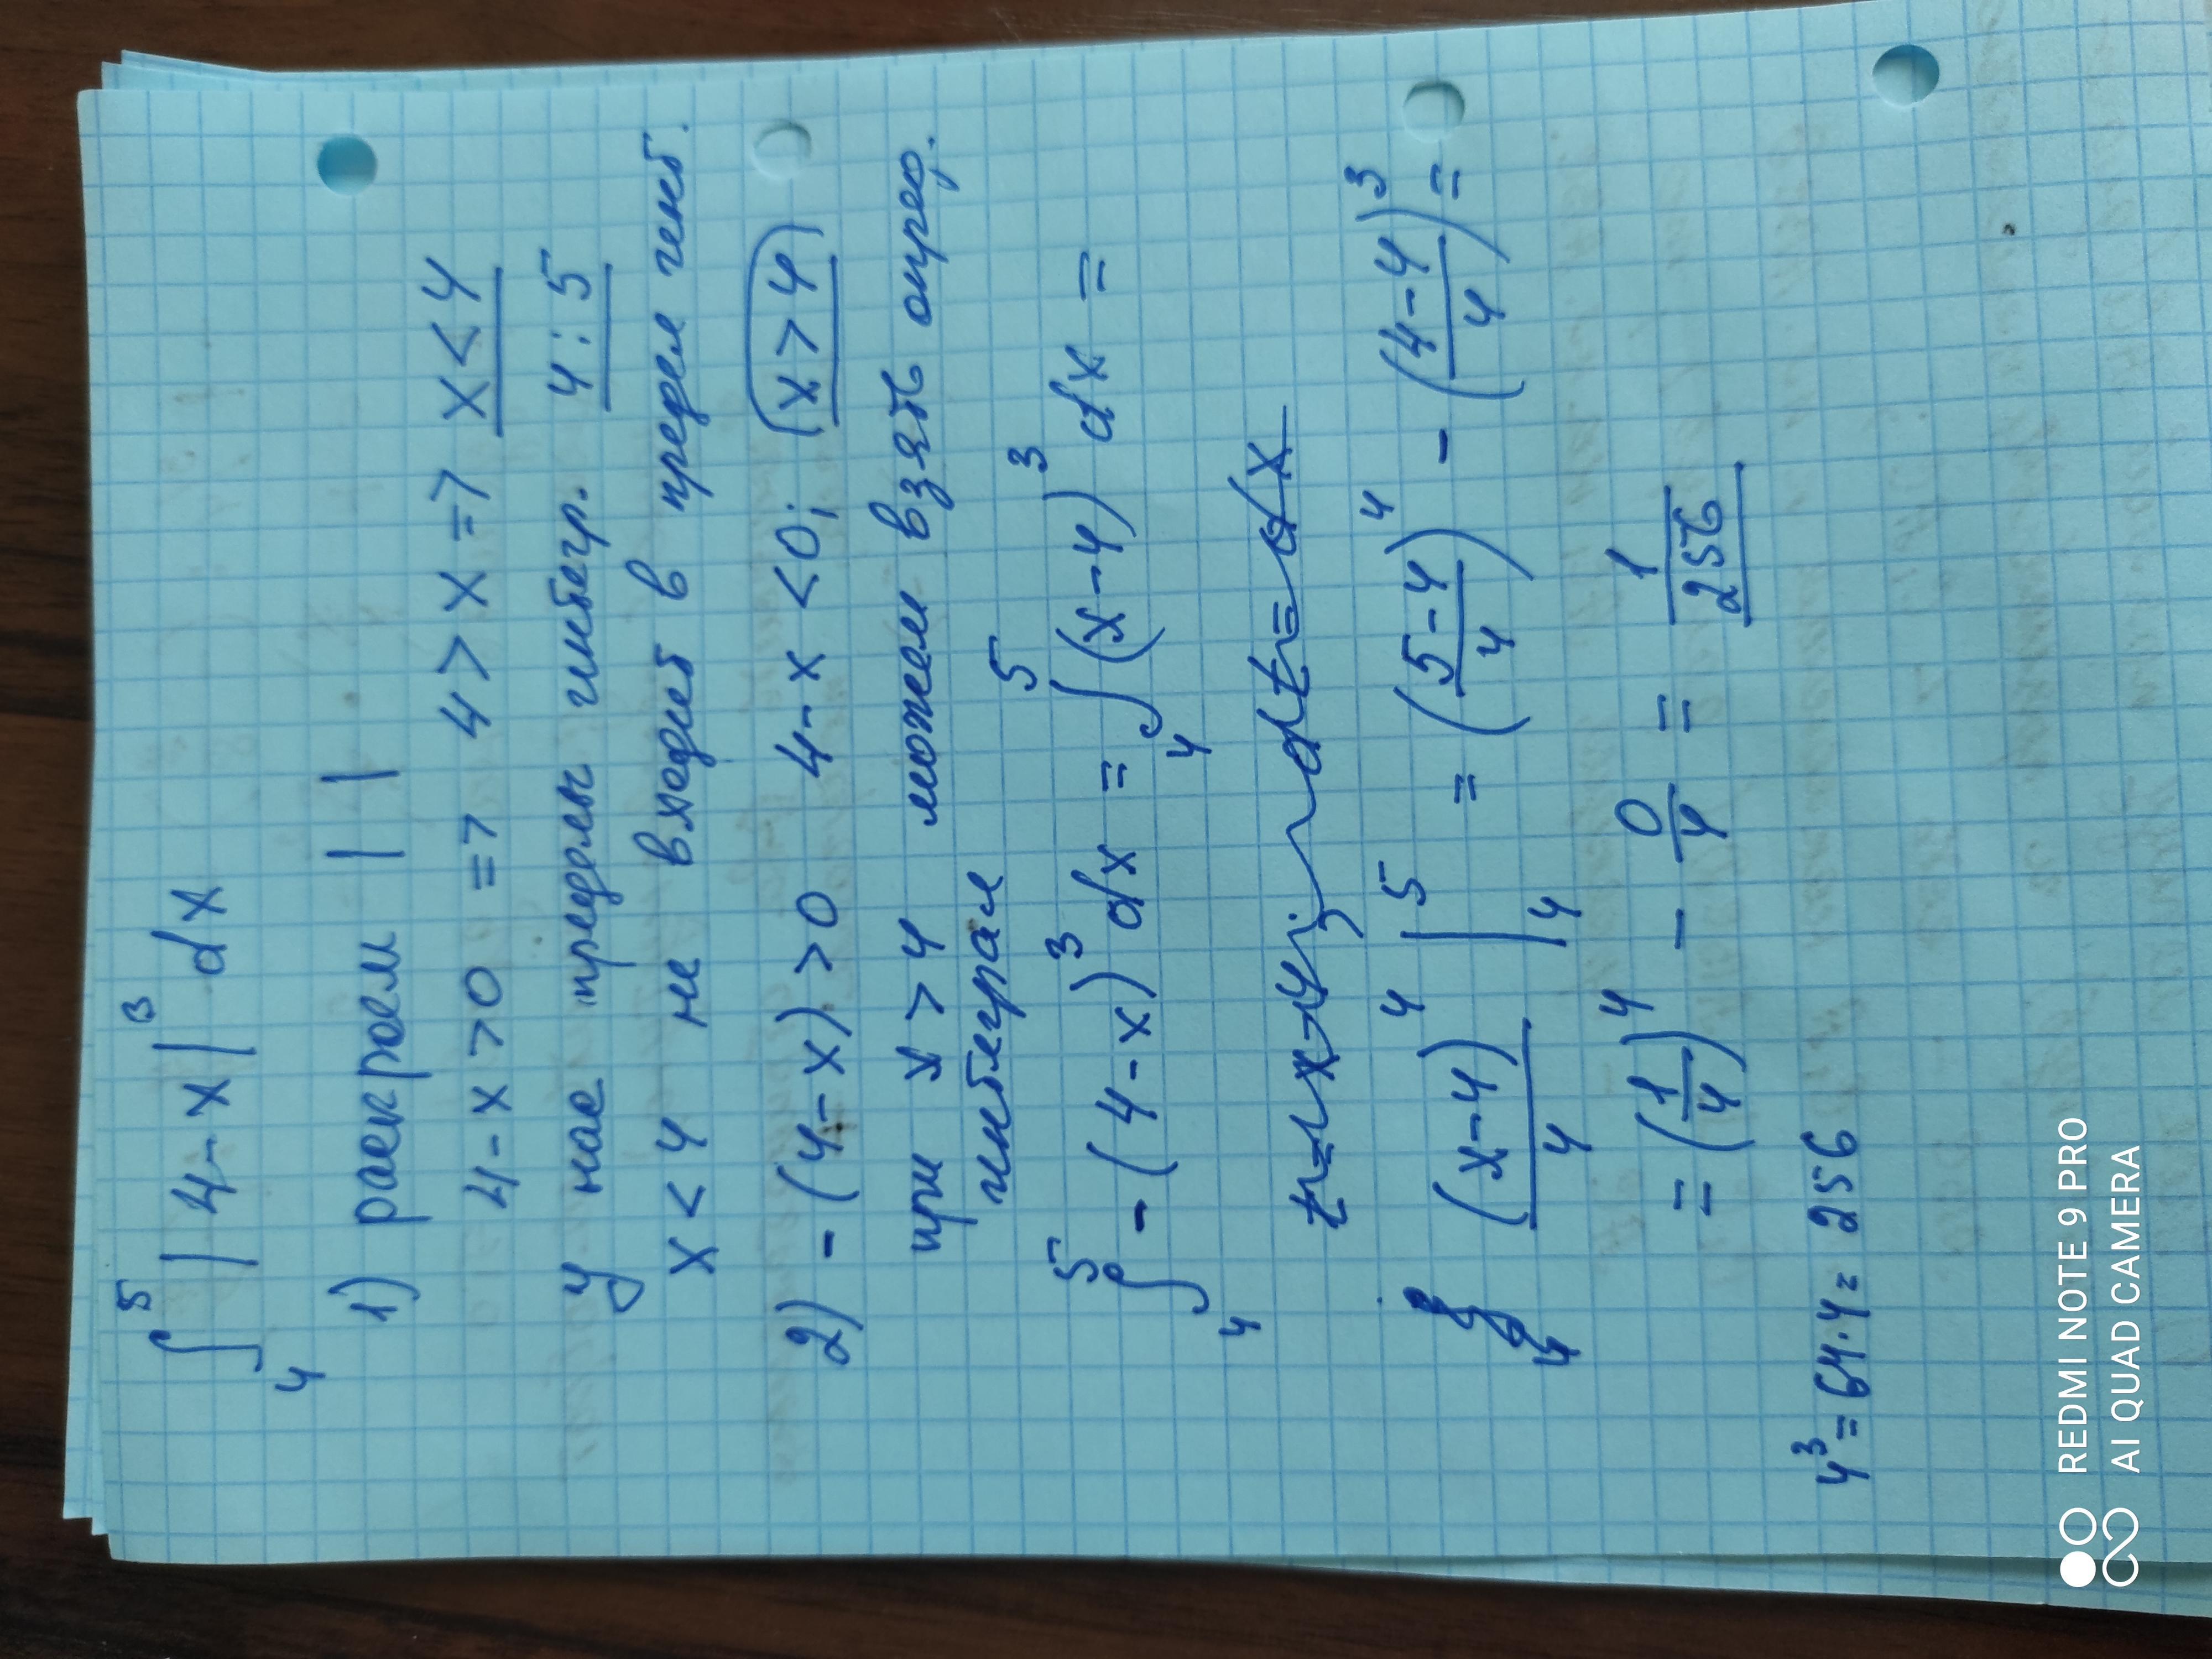 ∫₄⁵ |4-x|³ dx
1) раскроем | |
4-x>0 => 4>x => x<4
У нас пределы интегр. 4:5
x<4 не входит в предел инт.
2) -(4-x)>0 4-x<0; (x>4)
при x>4 можем взять опред.
интеграл
∫₄⁵ -(4-x)³dx = ∫₄⁵ (x-4)³ dx =
t=x-4; dt=dx
(x-4)⁴/4 |₄⁵ = ((5-4)/4)⁴ - ((4-4)/4)³ =
= (1/4)⁴ - 0/4 = 1/256
4³=64·4=256
REDMI NOTE 9 PRO
AI QUAD CAMERA